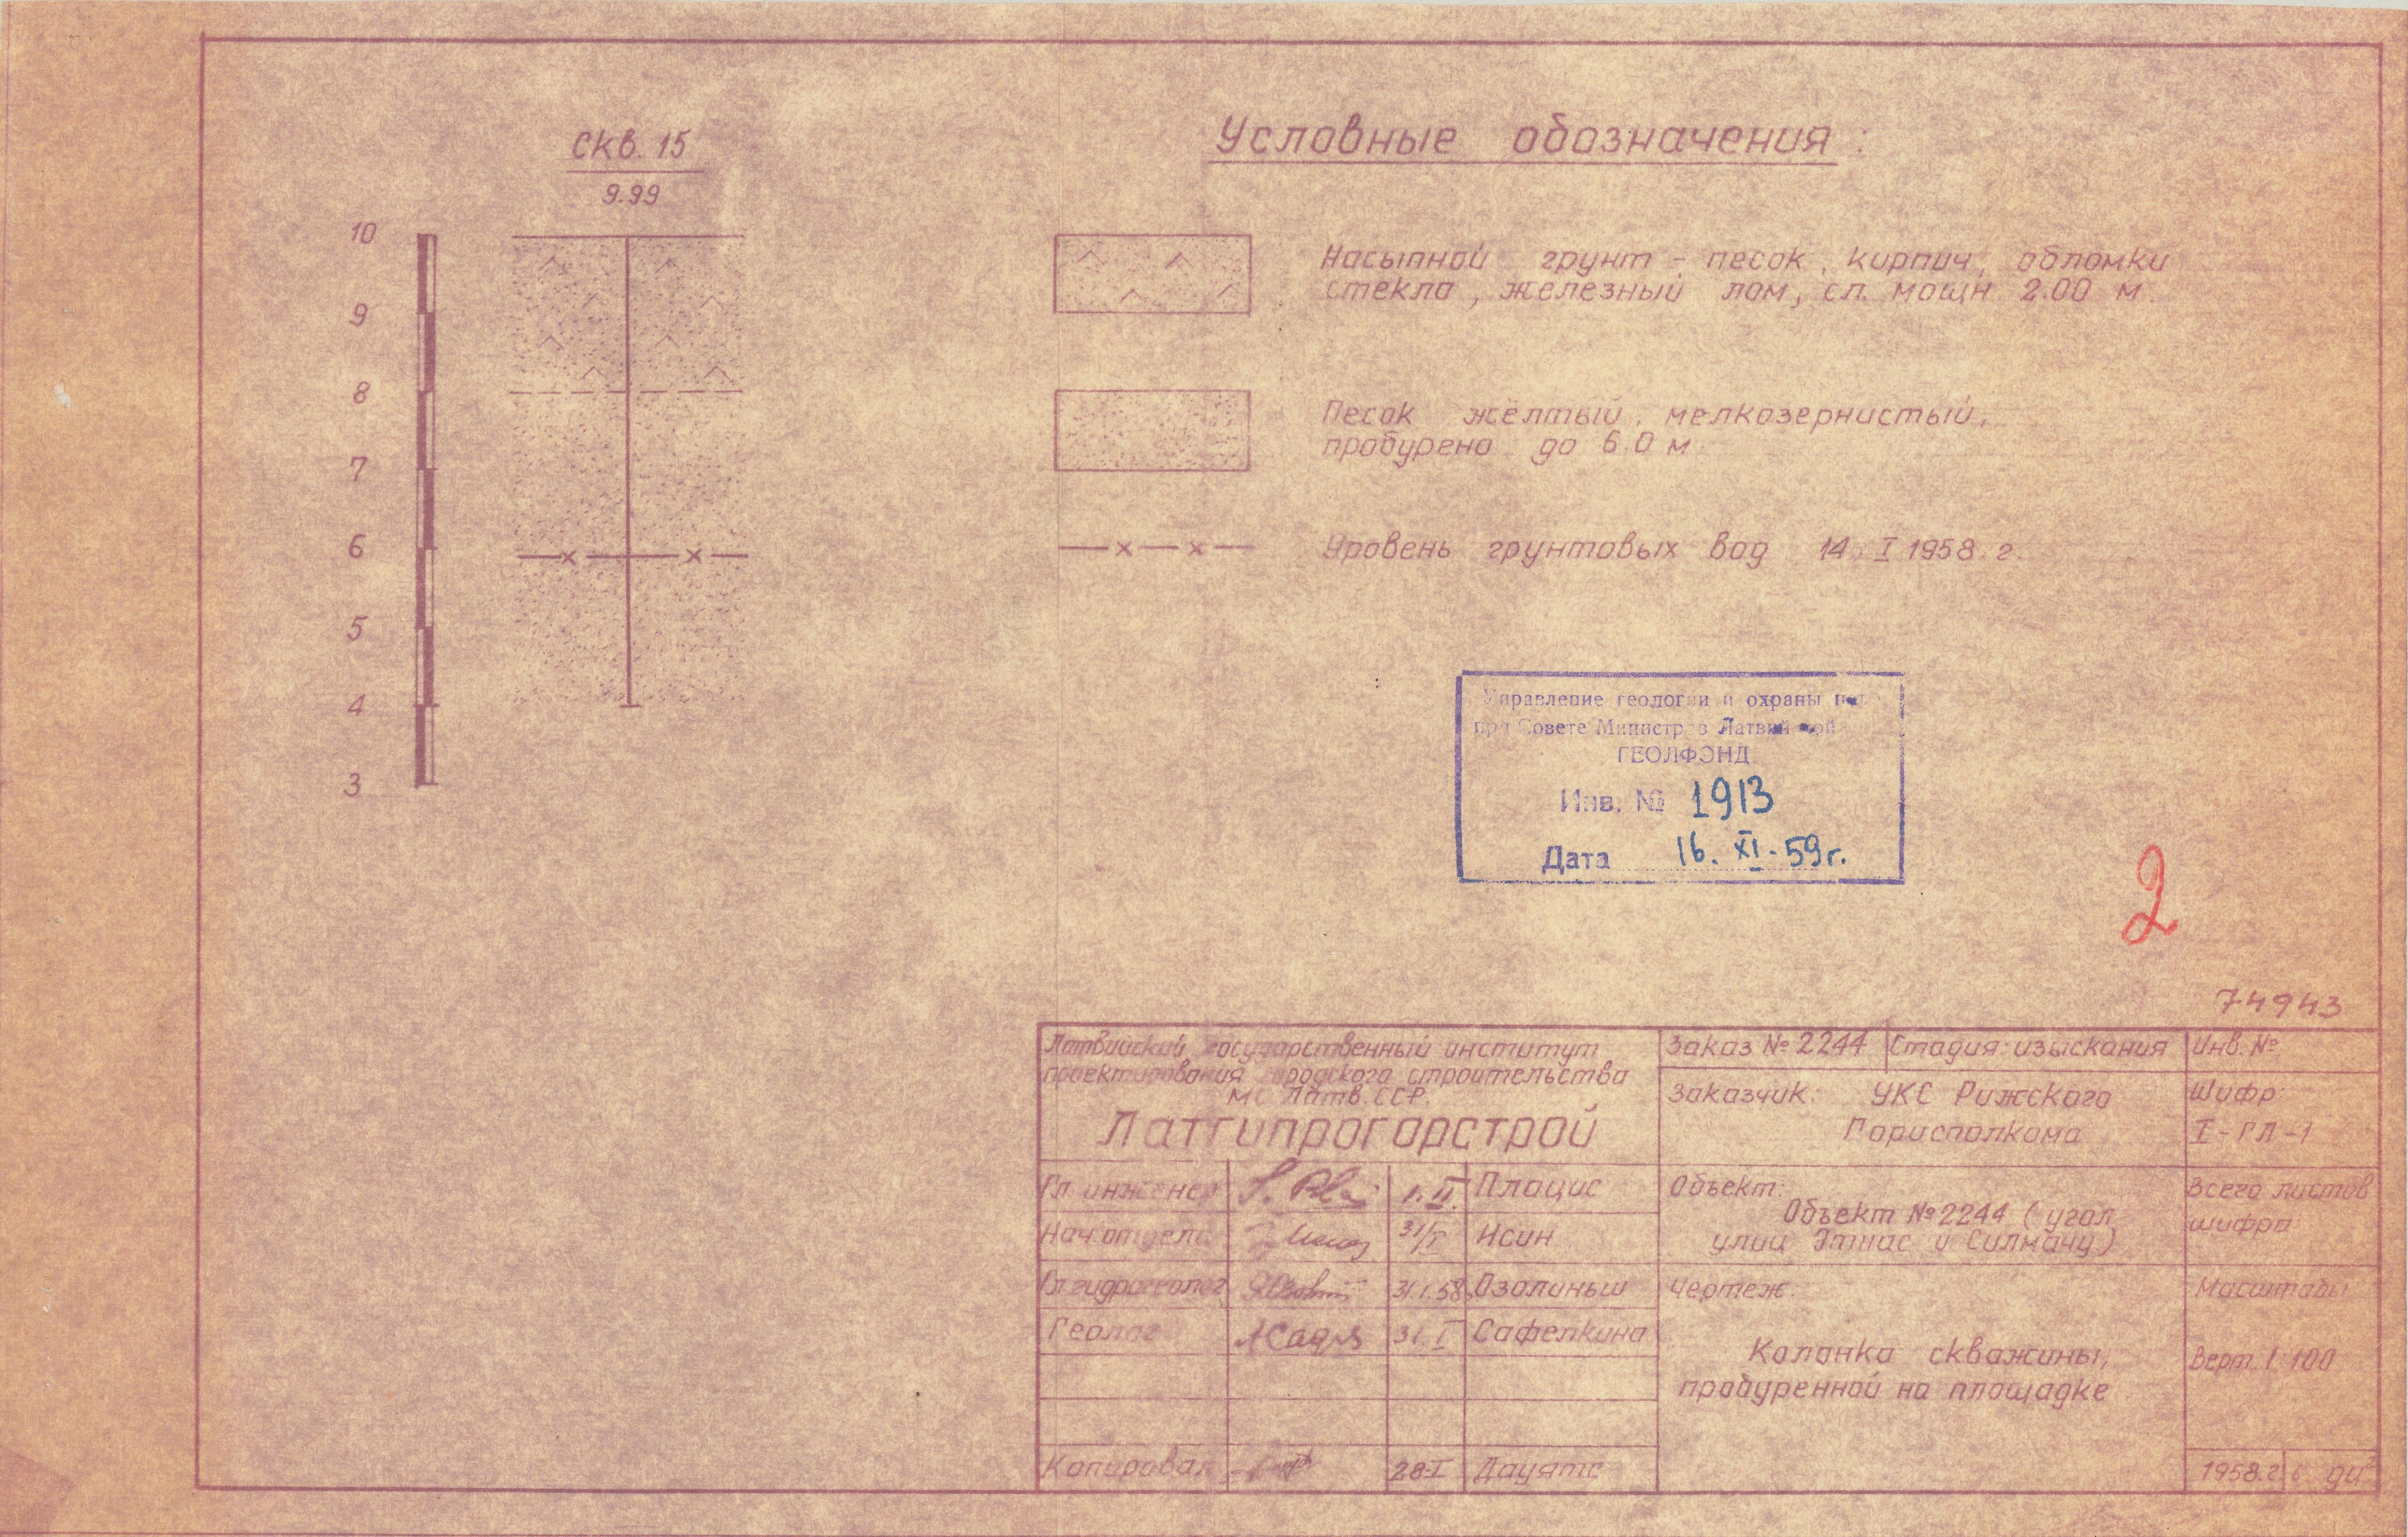 Скв. 15
9.99
10
9
8
7
6
5
4
3
Условные обозначения:
Насыпной грунт - песок, кирпич, обломки
стекла, железный лом, сл. мощн. 2.00 м.
Песок жёлтый, мелкозернистый,
пробурено до 6.0 м.
Уровень грунтовых вод 14. I 1958. г.
Управление геологии и охраны
при Совете Министров Латвийской
ГЕОЛФОНД
Инв. № 1913
Дата 16. XI - 59 г.
2
74943
Латвийский государственный институт
проектирования городского строительства
МС Латв. ССР.
Латгипрогорстрой
Заказ № 2244
Стадия: изыскания
Инв. №
Заказчик: УКС Рижского
Горисполкома
Шифр:
I-ГЛ-1
Гл. инженер 1. II. Плацис
Нач. отдела 31/I Исин
Гл. гидрогеолог 31.1.58 Озолиньш
Геолог 31. I Сафелкина
Копировал 28-I Дауятс
Объект:
Объект № 2244 (угол
улиц Этнас и Силмачу)
Всего листов
шифра:
Чертеж:
Колонка скважины,
пробуренной на площадке
Масштабы
Верт. 1:100
1958. г.